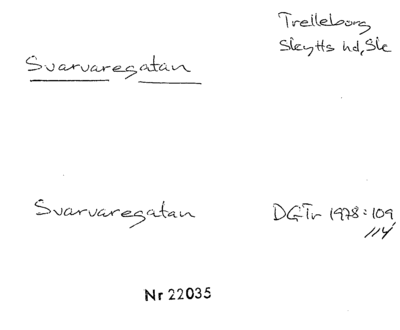 Trelleborg
Skytts hd, Ske
Svarvaregatan
Svarvaregatan
DGTr 1978:109,
114
Nr 22035